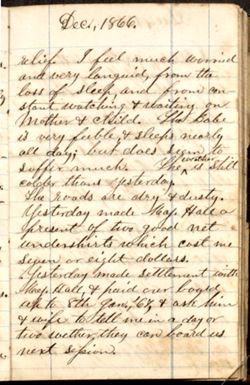 Dec., 1866.
relief. I feel much worried
and very languid, from the
loss of sleep, and from con
stant watching & waiting on
Mother & child. The babe
is very feeble & sleeps nearly
all day; but does seem to
suffer much. The weather is still
colder than yesterday.
The roads are dry & dusty.
Yesterday made Hall a
present of two good net
undershirts which cost me
seven or eight dollars.
Yesterday made settlement with
Hall, & paid our board
up to 8th Jan., '67, & ask him
& wife to tell me in a day or
two wether, they can board us
next session.